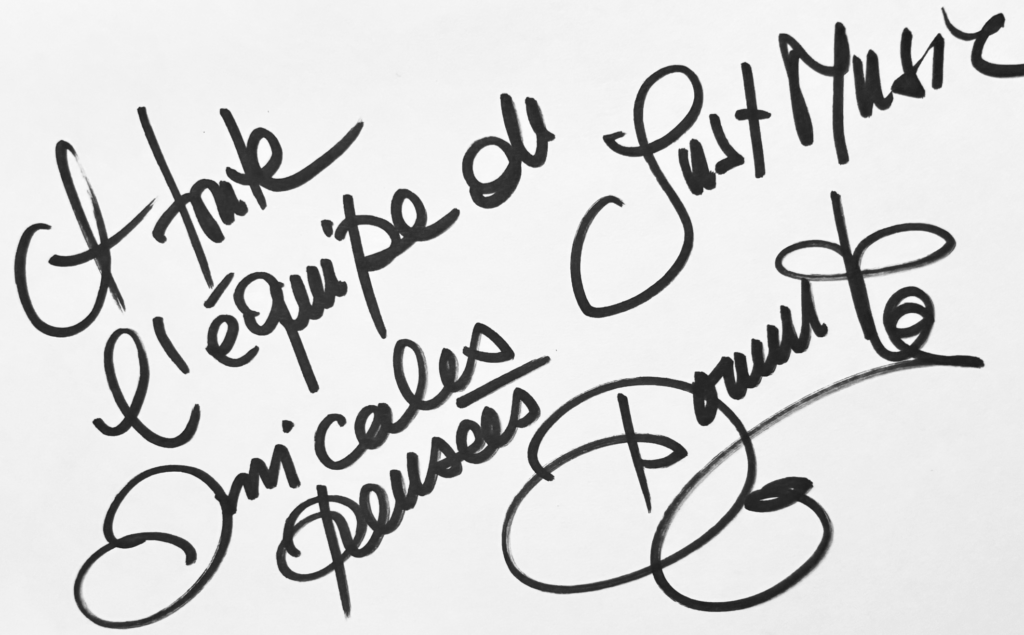 A toute
l'équipe du Just Music
Amicales
pensées